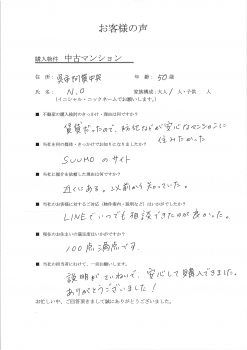 お客様の声
購入物件 中古マンション
住 所： 呉市阿賀中央 年 齢：50歳
氏 名： N.O 家族構成：大人 1 人・子供 人
(イニシャル・ニックネームでお願いします。)
■ 不動産の購入検討のきっかけ・理由は何ですか？
賃貸だったので、防犯などが安心なマンションに
住みたかった
■ 当社を何の媒体・きっかけでお知りになりましたか？
SUUMOのサイト
■ 当社に紹介を依頼した理由は何ですか？
近くにある。以前から知っていた。
■ 当社のお客様に対するご対応（物件案内・説明など）はいかがでしたか？
LINEでいつでも相談できたのが良かった。
■ 現在のお住まいの満足度はいかがですか？
100点満点です。
■ 当社の担当者にむけて、一言お願いします。
説明がていねいで、安心して購入できました。
ありがとうございました！
お忙しい中、ご回答頂きまして誠にありがとうございました。